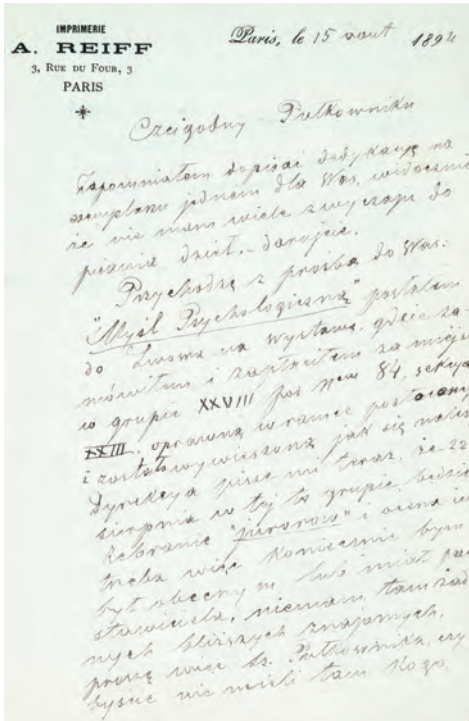 IMPRIMERIE
A. REIFF
3, RUE DU FOUR, 3
PARIS
Paris, le 15 aout 1894
Czcigodny Pułkowniku
Zapomniałem dopisać dedykacyę na
exemplarzu jednem dla Was, widocznie
że nie mam wiele zwyczaju do
pisania dzieł, - darujcie.
Przychodzę z prośbą do Was:
"Myśl Psychologiczną" posłałem
do Lwowa na wystawę, gdzie za-
mówiłem i zapłaciłem za miejsce
w grupie XXVIII pod Nrem 84, sekcya
XXIII. oprawną w ramce posłałem
i została wywieszoną jak się należy
Dyrekcya pisze mi teraz, że 22
sierpnia w tej to grupie będzie
zebranie "jurorów" i ocena ich
trzeba więc koniecznie bym
był obecny m lub miał przed
stawiciela, niemam tam żad
nych bliższych znajomych,
proszę więc Pułkownika, czy
byście nie mieli tam kogo,